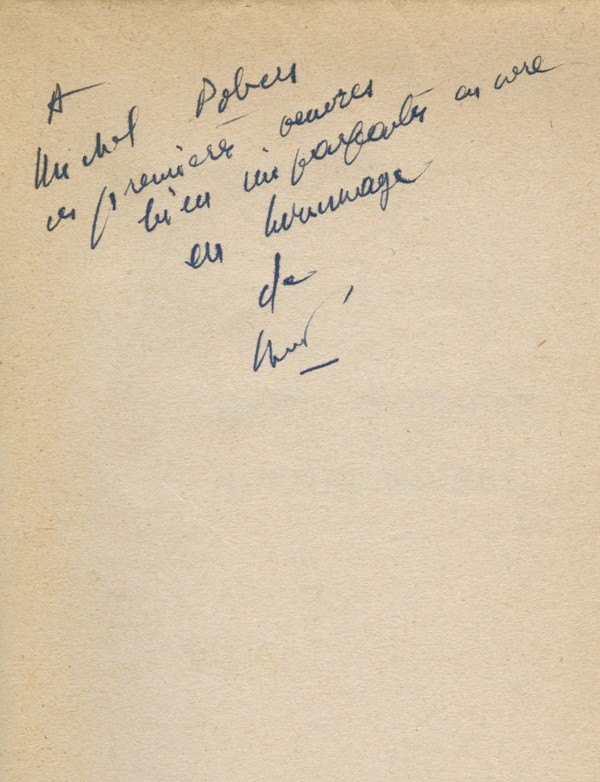 A
Michel
ces premières oeuvres
bien imparfaites encore
en hommage
de